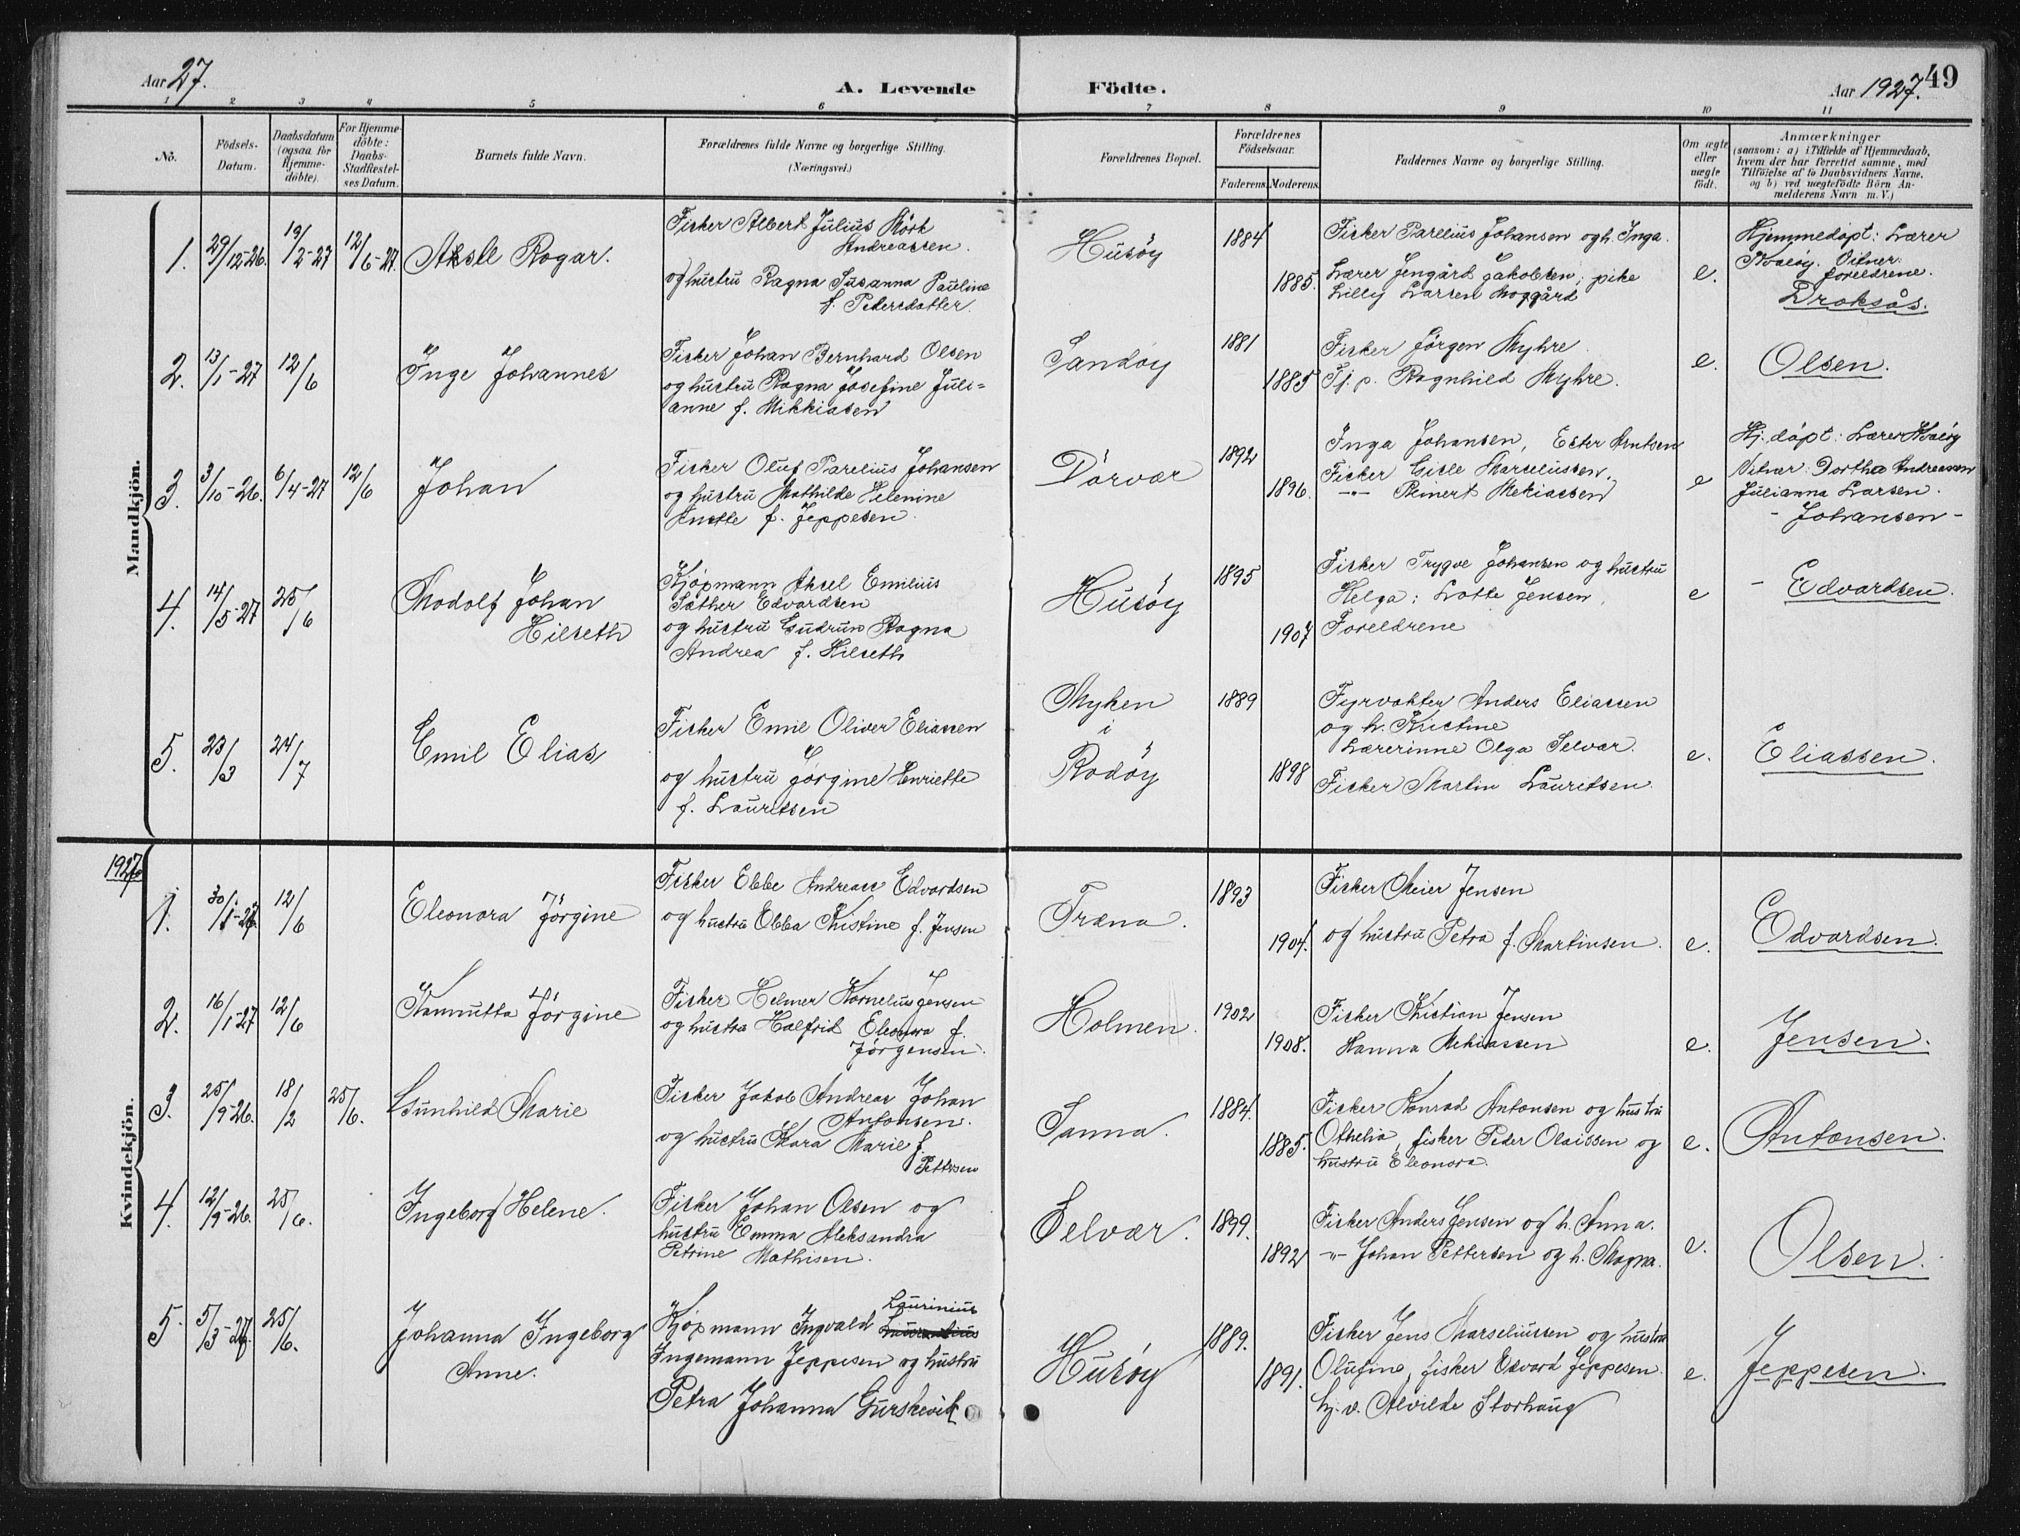 Aar 27.
A. Levende Födte.
Aar 1927.
49
1 2 3 4 5 6 7 8 9 10 11
No.
Födsels-Datum.
Daabsdatum (ogsaa for Hjemmedöbte).
For Hjemmedöbte: Daabs-Stadfæstelses Datum.
Barnets fulde Navn.
Forældrenes fulde Navne og borgerlige Stilling. (Næringsvei.)
Forældrenes Bopæl.
Forældrenes Födselsaar.
Faderens. Moderens.
Faddernes Navne og borgerlige Stilling.
Om ægte eller uægte födt.
Anmærkninger
(saasom: a) i Tilfælde af Hjemmedaab, hvem der har forrettet samme, med Tilföielse af to Daabsvidners Navne, og b) ved uægtefödte Börn Anmelderens Navn m. V.)
Mandkjön.
1. 29/12-26. 19/2-27 12/6-27. Aksle Rogar.
Fisker Albert Julius Mörk
Andreassen.
og hustru Ragna Susanna Pauline
f. Pedersdatter.
Husöy
1884
1885.
Fisker Parelius Johansen og h. Inga.
Lærer Jengård Jakobsen, pike
Lilly Larsen Moggård
e.
Hjemmedöpt: Lærer
Kvalöy. Vitner:
foreldrene.
Droksås.
2. 13/1-27 12/6 Inge Johannes
Fisker Johan Bernhard Olsen
og hustru Ragna Josefine Juli=
anne f. Mikkiasen
Sandöy
1881
1885
Fisker Jörgen Myhre.
Tj. p. Ragnhild Myhre.
e.
Olsen.
3. 3/10-26. 6/4-27 12/6 Johan
Fisker Oluf Parelius Johansen
og hustru Mathilde Helenine
Anette f. Jeppesen.
Dörvær
1892
1896.
Inga Johansen, Ester Arntsen
Fisker Gisle Marseliussen.
-"- Reinert Mekiassen
e
Hj. döpt: Lærer Kvalöy
Vitner: Dorthe Andreassen
Julianna Larsen.
- Johansen -
4. 14/5-27 25/6 Modolf Johan
Hilseth
Kjöpmann Aksel Emilius
Sæther Edvardsen
og hustru Gudrun Ragna
Andrea f. Hilseth
Husöy
1895
1907
Fisker Trygve Johansen og hustru
Helga: Lotte Jensen,
Foreldrene
e
- Edvardsen.
5. 23/3 24/7 Emil Elias
Fisker Emil Oliver Eliassen
og hustru Jörgine Henriette
f. Lauritsen
Myken
i
Rodöy
1889
1898
Fyrvokter Anders Eliassen
og h. Kristine
Lærerinne Olga Selvær.
Fisker Martin Lauritsen
e.
Eliassen.
1927
Kvindekjön.
1. 30/1-27 12/6 Eleonora Jörgine
Fisker Ebbe Andreas Edvardsen
og hustru Ebba Kristine f. Jensen
Træna.
1893
1904.
Fisker Meier Jensen
og hustru Petra f. Martinsen.
e.
Edvardsen.
2. 16/1-27 12/6 Jörgine
Fisker Helmer Kornelius Jensen
og hustru Halfrid Eleonora f.
Jörgensen.
Holmen.
1902
1908.
Fisker Kristian Jensen
Hanna Mekiassen
e.
Jensen.
3. 25/9-26. 18/2 25/6. Gunhild Marie
Fisker Jakob Andreas Johan
Antonsen.
og hustru Mara Marie f.
Pettersen
Sanna.
1884.
1885.
Fisker Konrad Antonsen og hustru
Othelia, fisker Peder Olaissen og
hustru Eleonora.
e.
Antonsen.
4. 12/9-26. 25/6. Ingeborg Helene.
Fisker Johan Olsen og
hustru Emma Aleksandra
Petrine Mathisen.
Selvær.
1899.
1892
Fisker Anders Jensen og h. Anna.
-"- Johan Pettersen og h. Magna.
e.
Olsen.
5. 5/3-27. 25/6. Johanna Ingeborg
Anne.
Laurinius
Kjöpmann Ingvald
Ingemann Jeppesen og hustru
Petra Johanna Gurskevik
Husöy
1889.
1891.
Fisker Jens Marseliussen og hustru
Olufine, fisker Edvard Jeppesen.
hj. v. Alvilde Storhaug
e.
Jeppesen.